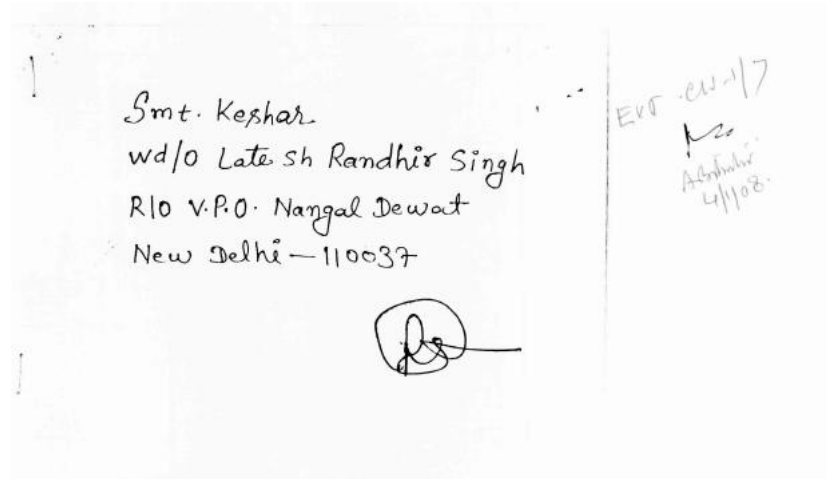 Smt. Keshar
wd/o Late Sh Randhir Singh
R/o V.P.O. Nangal Dewat
New Delhi - 110037
4/1/08.